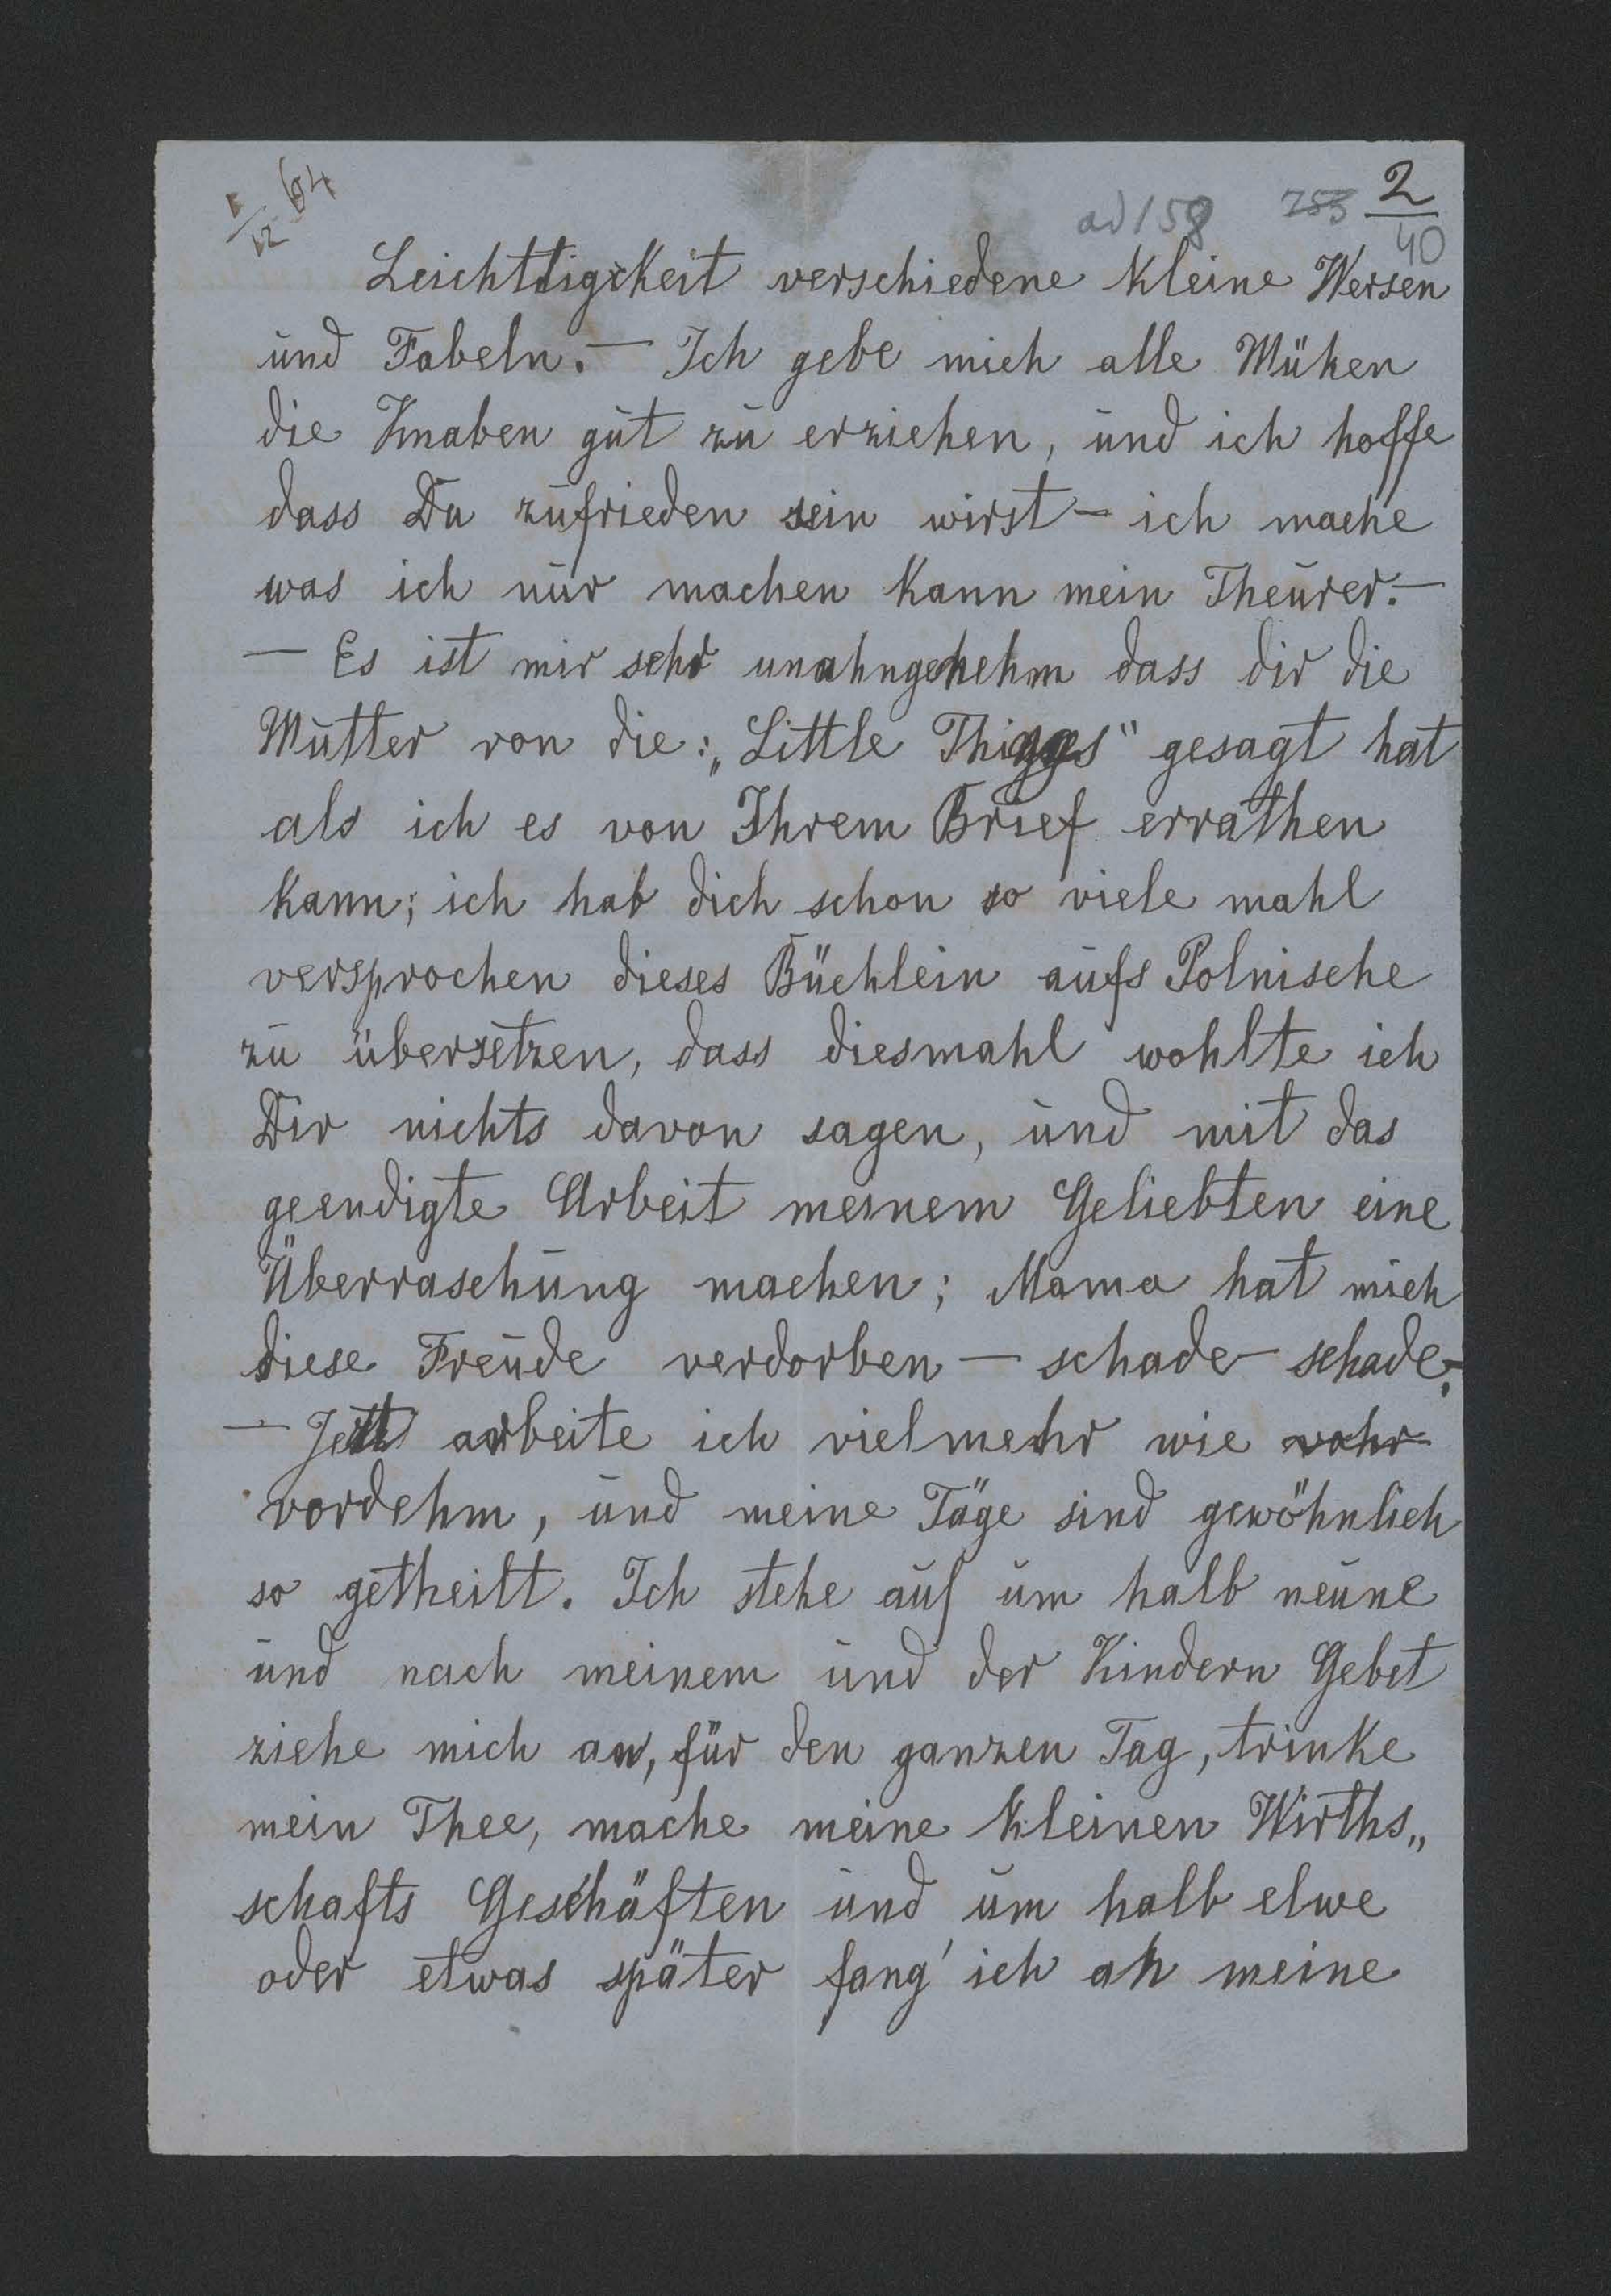 1/12 64
ad 158 753 2/40
Leichttigkeit verschiedene kleine Wersen
und Fabeln. — Ich gebe mich alle Mühen
die Knaben gut zu erziehen, und ich hoffe
dass Du zufrieden sein wirst — ich mache
was ich nur machen kann mein Theurer. —
— Es ist mir sehr unahngenehm dass dir die
Mutter von die: „Little Things" gesagt hat
als ich es von Ihrem Brief errathen
kann; ich hab dich schon so viele mahl
versprochen dieses Büchlein aufs Polnische
zu übersetzen, dass diesmahl wohlte ich
Dir nichts davon sagen, und mit das
geendigte Arbeit meinem Geliebten eine
Überraschung machen; Mama hat mich
diese Freude verdorben — schade — schade. —
— Jetzt arbeite ich vielmehr wie vohr
vordehm, und meine Täge sind gewöhnlich
so getheilt. Ich stehe auf um halb neune
und nach meinem und der Kindern Gebet
ziehe mich an, für den ganzen Tag, trinke
mein Thee, mache meine kleinen Wirths„
schafts Geschäften und um halb elwe
oder etwas später fang' ich an meine